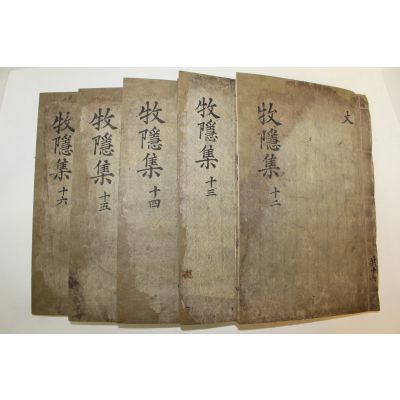 牧隱集 十二
文
牧隱集 十三
牧隱集 十四
牧隱集 十五
牧隱集 十六